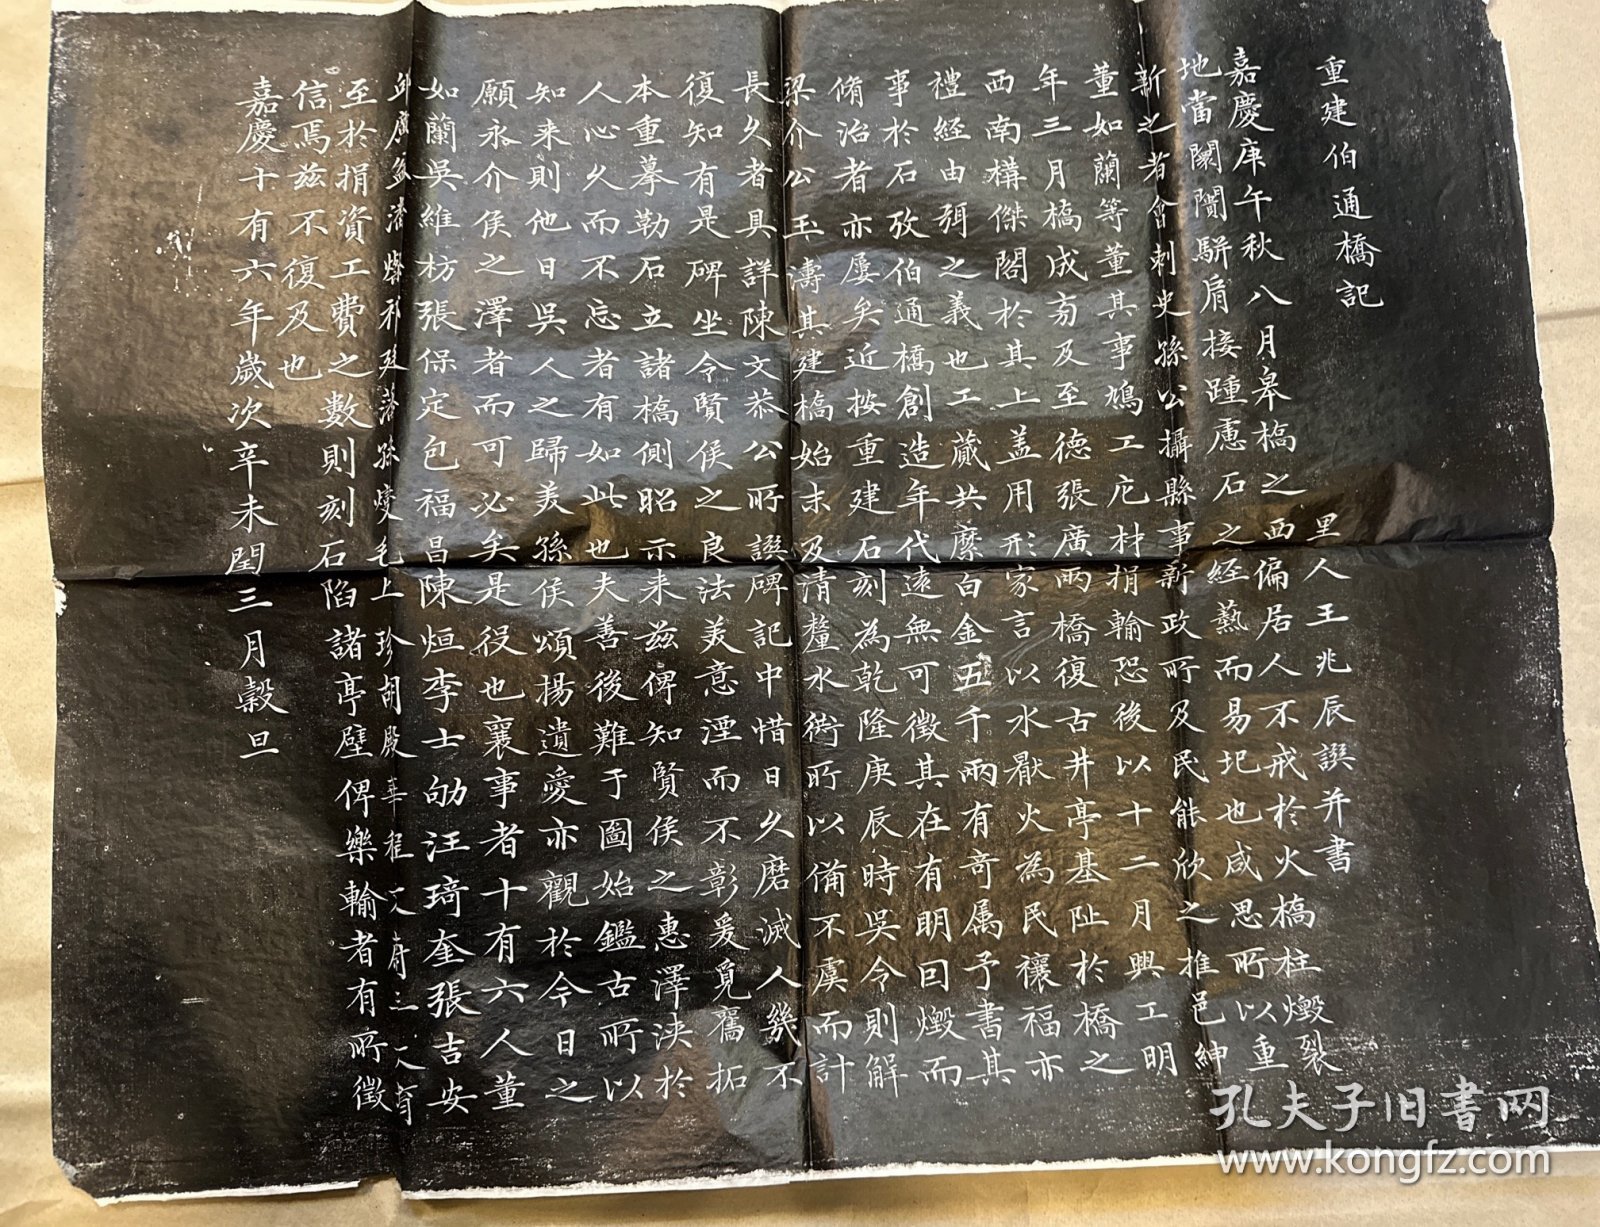 重建伯通橋記
里人王兆辰譔并書
嘉慶庚午秋八月皋橋之西偏居人不戒於火橋柱燬裂
地當闤闠駢肩接踵慮石之經爇而易圮也咸思所以重
新之者會刺史孫公攝縣事新政所及民能欣之推邑紳
董如蘭等董其事鳩工庀材捐輸恐後以十二月興工明
年三月橋成芴及至德張廣兩橋復古井亭基阯於橋之
西南構傑閣於其上盖用形家言以水厭火為民禳福亦
禮經由弭之義也工蕆共縻白金五千兩有奇属予書其
事於石攷伯通橋創造年代遠無可徵其在有明回燬而
脩治者亦屢矣近按重建石刻為乾隆庚辰時吳令則解
梁介公玉濤其建橋始末及清釐水衖所以備不虞而計
長久者具詳陳文恭公所譔碑記中惜日久磨滅人幾不
復知有是碑坐令賢侯之良法美意湮而不彰爰覓舊拓
本重摹勒石立諸橋側昭示来兹俾知賢侯之惠澤浹於
人心久而不忘者有如此也夫善後難于圖始鑑古所以
知来則他日吳人之歸美孫侯頌揚遺愛亦觀於今日之
願永介侯之澤者而可必矣是役也襄事者十有六人董
如蘭吳維枋張保定包福昌陳烜李士劬汪琦奎張吉安
毛上珍胡殿華程
至於捐資工費之數則刻石陷諸亭壁俾樂輸者有所徵
信焉兹不復及也
嘉慶十有六年歲次辛未閏三月穀旦
孔夫子旧书网
www.kongfz.com